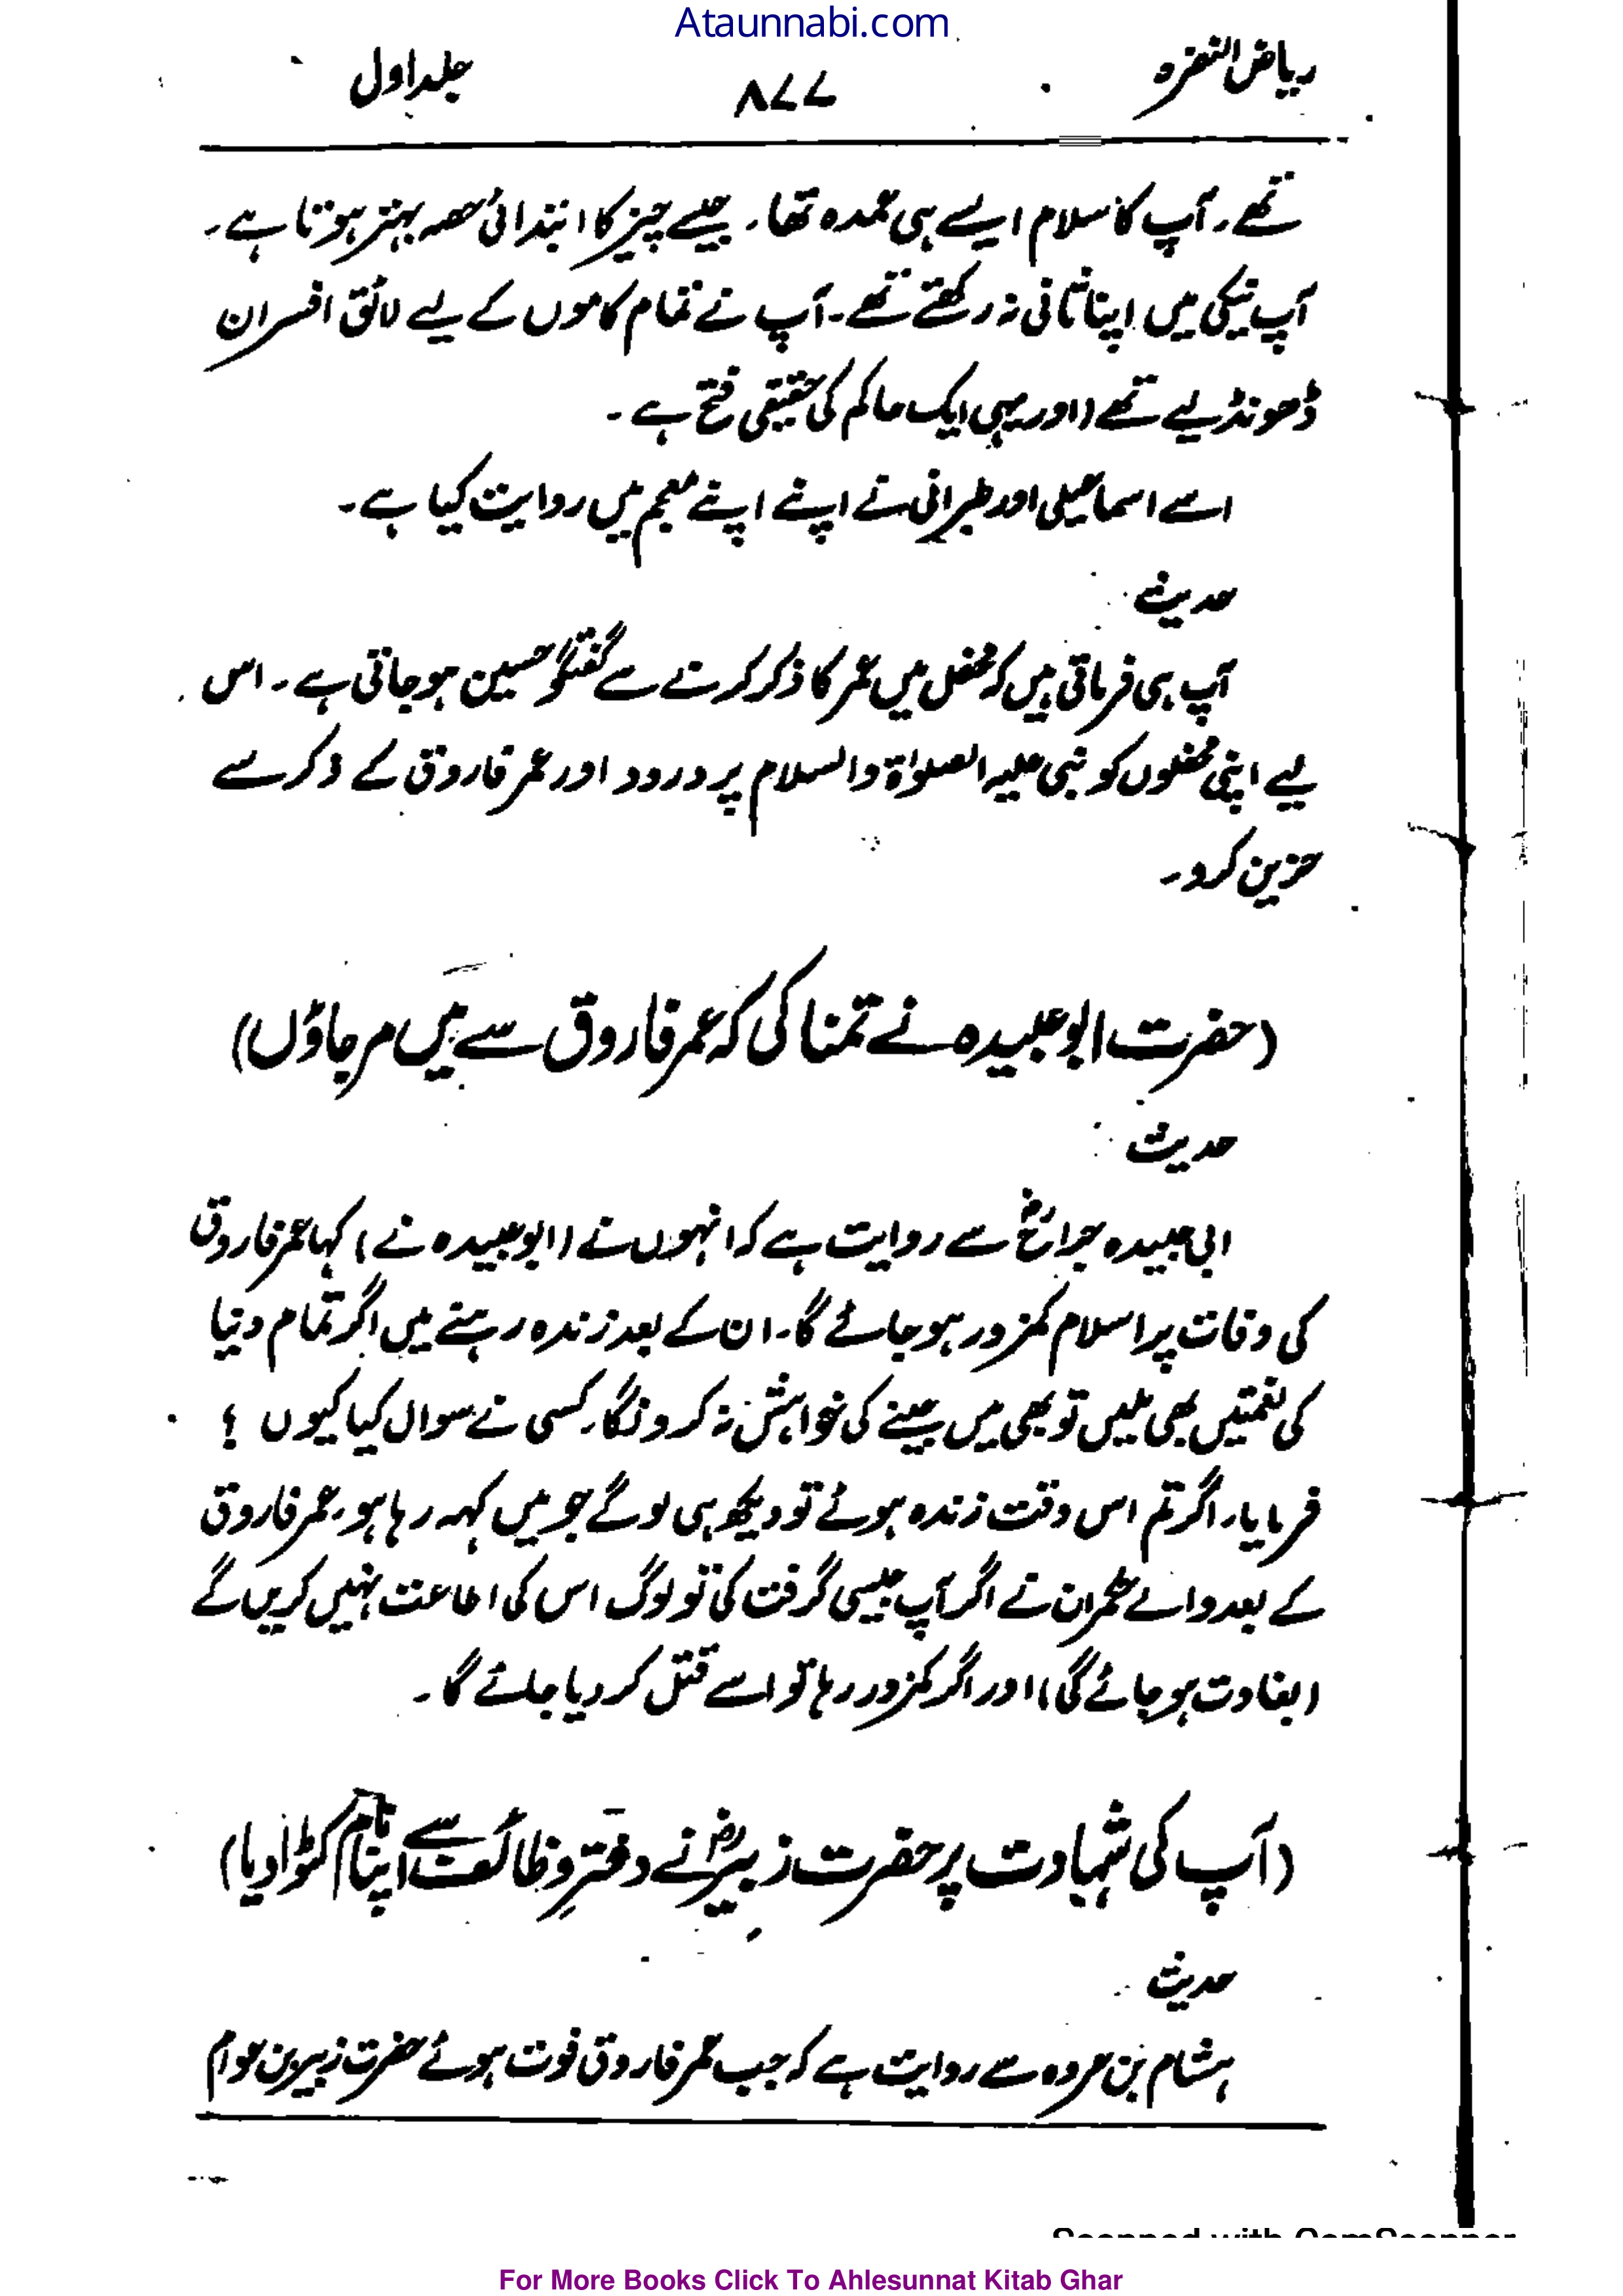 Ataunnabi.com
ریاض النضرہ ۸۷۷ جلد اول
تھے۔ آپ کا سلام ایسے ہی عمدہ تھا۔ جیسے چیز کا ابتدائی حصہ بہتر ہوتا ہے۔
آپ نیکی میں اپنا ثانی نہ رکھتے تھے۔ آپ نے تمام کاموں کے لیے لائق افسران
ڈھونڈ لیے تھے (اور یہی ایک حاکم کی حقیقی فتح ہے۔
اسے اسماعیلی اور طبرانی نے اپنے اپنے معجم میں روایت کیا ہے۔
حدیث
آپ ہی فرماتی ہیں کہ محفل میں عمر کا ذکر کرنے سے گفتگو حسین ہو جاتی ہے۔ اس
لیے اپنی محفلوں کو نبی علیہ الصلوٰۃ والسلام پر درود اور عمر فاروق کے ذکر سے
مزین کرو۔
(حضرت ابو عبیدہ نے تمنا کی کہ عمر فاروق سے میں مر جاؤں)
حدیث
ابی عبیدہ جراحؓ سے روایت ہے کہ انہوں نے (ابو عبیدہ نے) کہا عمر فاروق
کی وفات پر اسلام کمزور ہو جائے گا۔ ان کے بعد زندہ رہنے میں اگر تمام دنیا
کی نعمتیں بھی ملیں تو بھی میں جینے کی خواہش نہ کرونگا۔ کسی نے سوال کیا کیوں ؟
فرمایا۔ اگر تم اس وقت زندہ ہوئے تو دیکھ ہی لو گے جو میں کہہ رہا ہو۔ عمر فاروق
کے بعد والے حکمران نے اگر آپ جیسی گرفت کی تو لوگ اس کی اطاعت نہیں کریں گے
(بغاوت ہو جائے گی) اور اگر کمزور رہا تو اسے قتل کر دیا جائے گا۔
(آپ کی شہادت پر حضرت زبیرؓ نے دفتر وظائف سے اپنا نام کٹوا دیا)
حدیث
ہشام بن عروہ سے روایت ہے کہ جب عمر فاروق فوت ہوئے حضرت زبیر بن عوام
Scanned with CamScanner
For More Books Click To Ahlesunnat Kitab Ghar